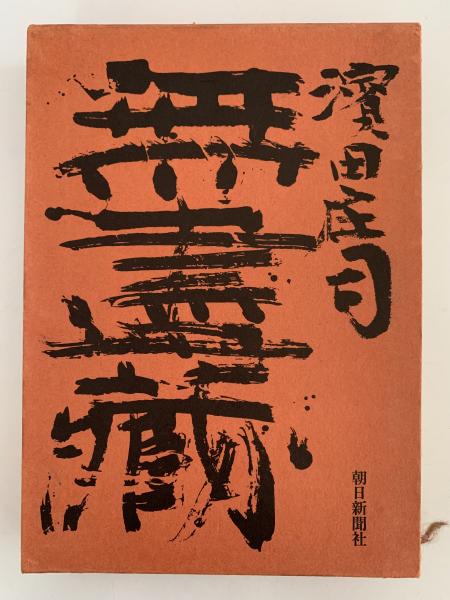 濱田庄司
無盡蔵
朝日新聞社